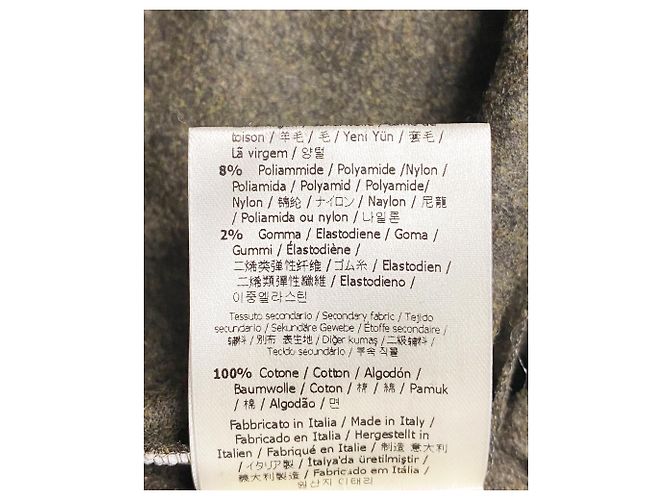 toison / 羊毛 / 毛 / Yeni Yün / 套毛 /
Lã virgem / 양털
8% Poliammide / Polyamide /Nylon /
Poliamida / Polyamid / Polyamide/
Nylon / 锦纶 / ナイロン / Naylon / 尼龍
/ Poliamida ou nylon / 나일론
2% Gomma / Elastodiene / Goma /
Gummi / Élastodiène /
二烯类弹性纤维 / ゴム糸 / Elastodien /
二烯類彈性纖維 / Elastodieno /
이중엘라스틴
Tessuto secondario / Secondary fabric / Tejido
secundario / Sekundäre Gewebe / Étoffe secondaire /
辅料 / 別布 表生地 / Diğer kumaş / 二级輔料 /
Tecido secundário / 부속 직물
100% Cotone / Cotton / Algodón /
Baumwolle / Coton / 棉 / 綿 / Pamuk
/ 棉 / Algodão / 면
Fabbricato in Italia / Made in Italy /
Fabricado en Italia / Hergestellt in
Italien / Fabriqué en Italie / 制造 意大利
/ イタリア製 / İtalya'da üretilmiştir /
義大利製造 / Fabricado em Itália /
원산지 이태리